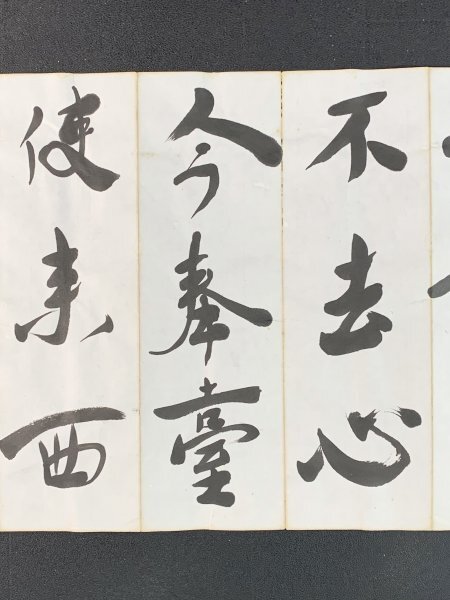 不去心
今奉臺
使来西